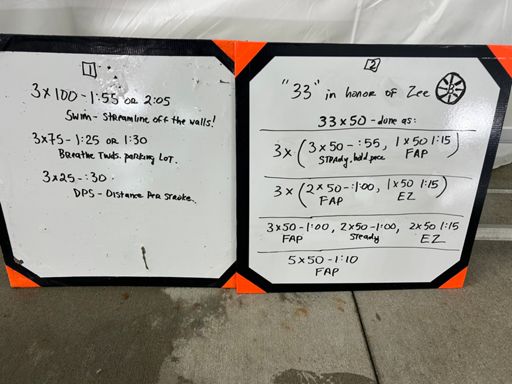 1
3x100 - 1:55 or 2:05
Swim - Streamline off the walls!
3x75 - 1:25 or 1:30
Breathe Twds. parking lot.
3x25 - :30.
DPS - Distance Per Stroke.
2
"33" in honor of Zee
33x50 - done as:
3x (3x50 - :55, 1x50 1:15)
Steady, hold pace FAP
3x (2x50 - 1:00, 1x50 1:15)
FAP EZ
3x50 - 1:00, 2x50 - 1:00, 2x50 1:15
FAP Steady EZ
5x50 - 1:10
FAP